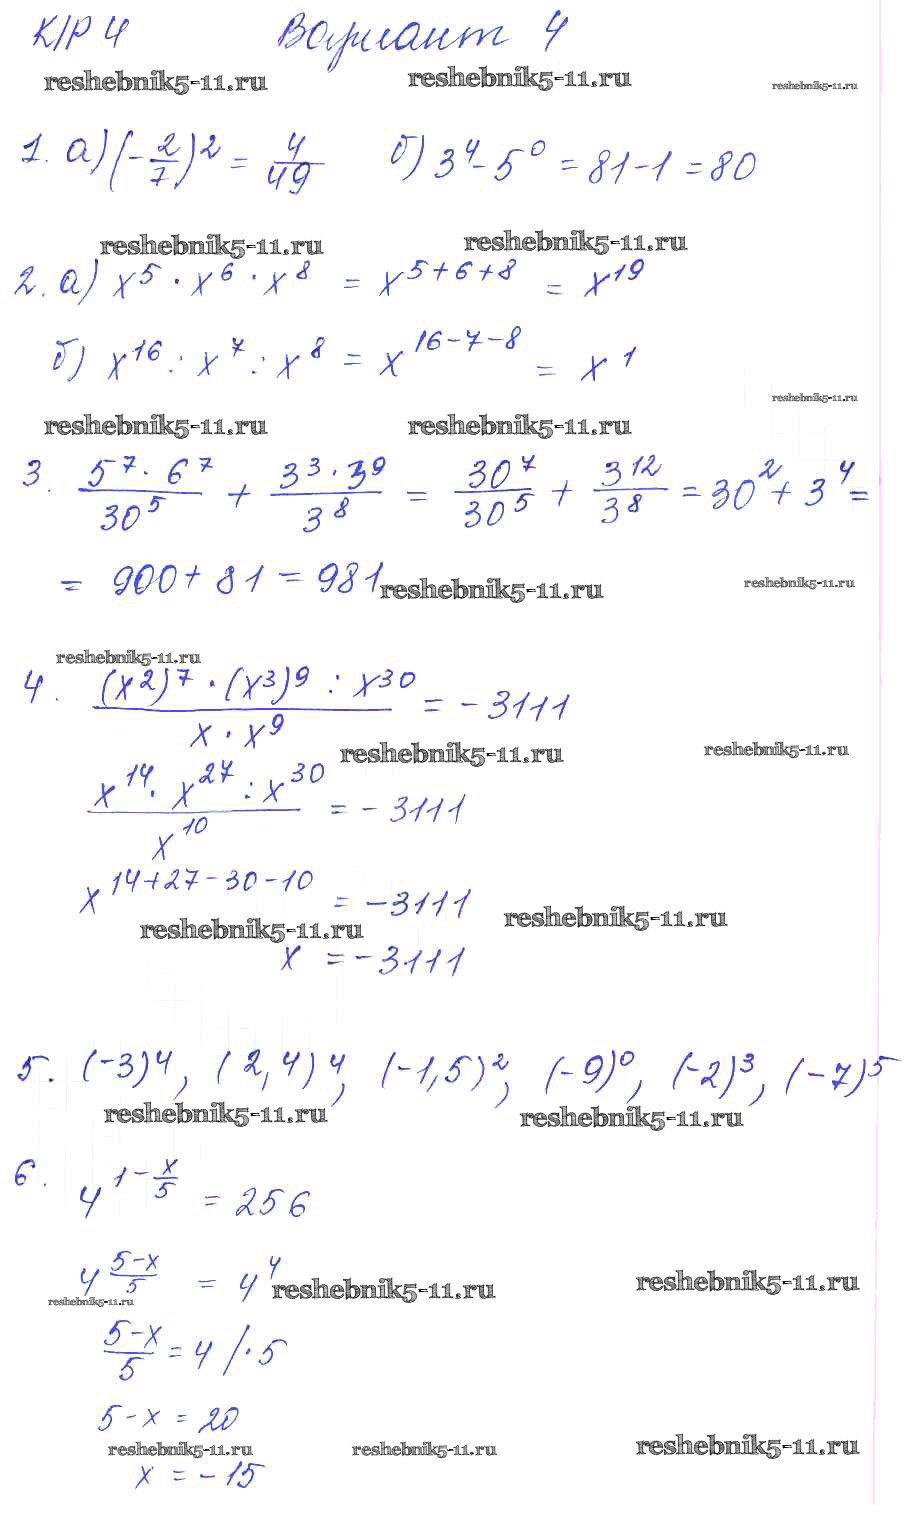 К/Р 4 Вариант 4
reshebnik5-11.ru reshebnik5-11.ru reshebnik5-11.ru
1. а) (-2/7)^2 = 4/49 б) 3^4 - 5^0 = 81 - 1 = 80
reshebnik5-11.ru reshebnik5-11.ru
2. а) x^5 · x^6 · x^8 = x^(5+6+8) = x^19
б) x^16 : x^7 : x^8 = x^(16-7-8) = x^1
reshebnik5-11.ru
reshebnik5-11.ru reshebnik5-11.ru
3. (5^7 · 6^7)/30^5 + (3^3 · 3^9)/3^8 = 30^7/30^5 + 3^12/3^8 = 30^2 + 3^4 =
= 900 + 81 = 981
reshebnik5-11.ru reshebnik5-11.ru
reshebnik5-11.ru
4. ((x^2)^7 · (x^3)^9 : x^30)/(x · x^9) = -3111
reshebnik5-11.ru reshebnik5-11.ru
(x^14 · x^27 : x^30)/x^10 = -3111
x^(14+27-30-10) = -3111
reshebnik5-11.ru reshebnik5-11.ru
x = -3111
5. (-3)^4, (2,4)^4, (-1,5)^2, (-9)^0, (-2)^3, (-7)^5
reshebnik5-11.ru reshebnik5-11.ru
6. 4^(1-x/5) = 256
4^((5-x)/5) = 4^4
reshebnik5-11.ru reshebnik5-11.ru
reshebnik5-11.ru
(5-x)/5 = 4 /·5
5-x = 20
reshebnik5-11.ru reshebnik5-11.ru reshebnik5-11.ru
x = -15